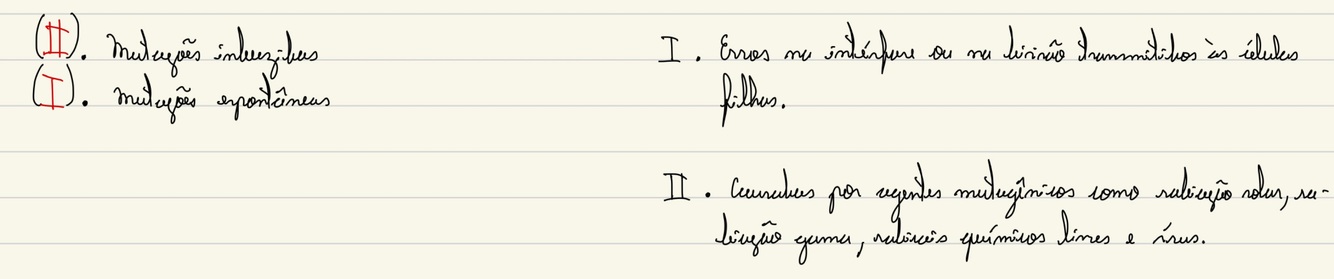 (II). Mutações induzidas
(I). Mutações espontâneas
I. Erros na intérfase ou na divisão transmitidos às células
filhas.
II. Causadas por agentes mutagênicos como radiação solar, ra-
diação gama, radicais químicos livres e vírus.